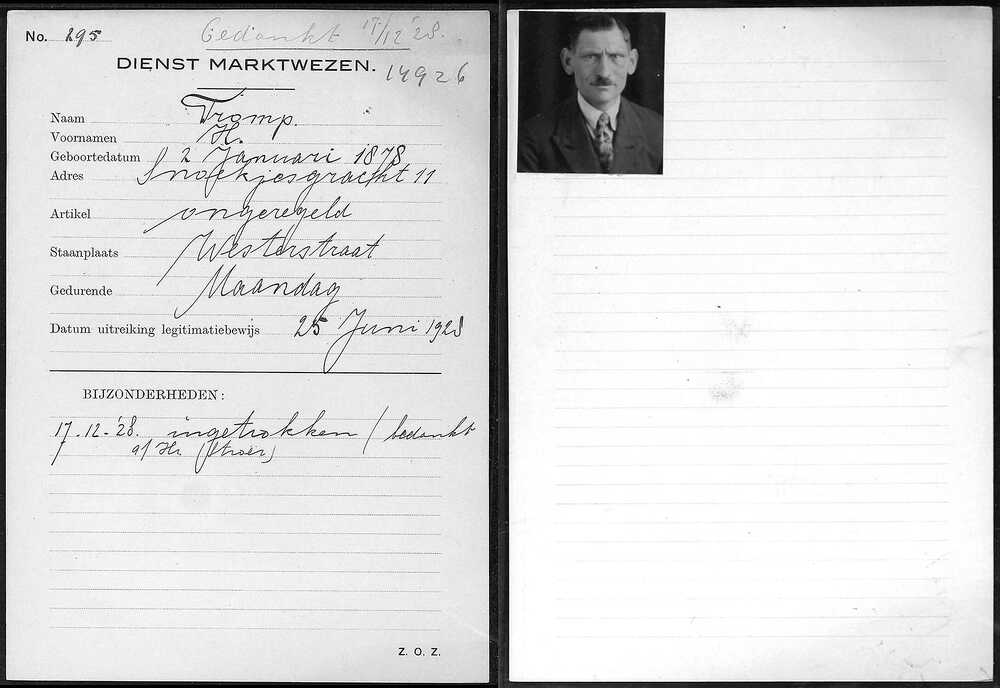 No. 295
Bedankt 17/12 '28.
DIENST MARKTWEZEN.
14926
Naam Tromp.
Voornamen H.
Geboortedatum 2 Januari 1878
Adres Snoekjesgracht 11
Artikel ongeregeld
Staanplaats Westerstraat
Gedurende Maandag
Datum uitreiking legitimatiebewijs 25 Juni 1928
BIJZONDERHEDEN:
17-12-'28. ingetrokken / bedankt
Z. O. Z.